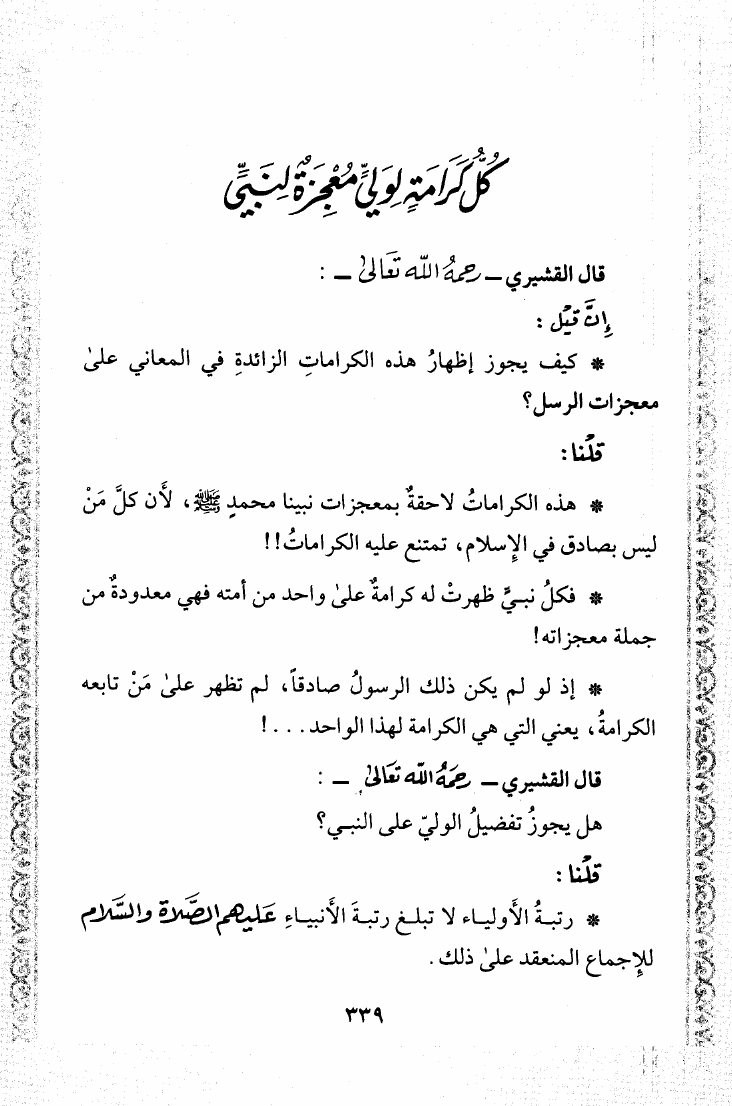 كُلُّ كَرَامَةٍ لِوَلِيٍّ مُعْجِزَةٌ لِنَبِيٍّ
قال القشيري ـ رحمهُ اللّه تعَالىٰ ـ :
إِنَّ قيْل :
* كيف يجوز إظهارُ هذه الكراماتِ الزائدةِ في المعاني علىٰ
معجزات الرسل؟
قلْنا :
* هذه الكراماتُ لاحقةٌ بمعجزات نبينا محمدٍ ﷺ، لأن كلَّ مَنْ
ليس بصادق في الإسلام، تمتنع عليه الكراماتُ!!
* فكلُ نبـيٍّ ظهرتْ له كرامةٌ علىٰ واحد من أمته فهي معدودةٌ من
جملة معجزاته!
* إذ لو لم يكن ذلك الرسولُ صادقاً، لم تظهر علىٰ مَنْ تابعه
الكرامةُ، يعني التي هي الكرامة لهذا الواحد. . . !
قال القشيري ـ رحمَهُ اللّه تعَالىٰ ـ :
هل يجوزُ تفضيلُ الوليّ على النبـي؟
قلْنا :
* رتبـةُ الأوليـاء لا تبلـغ رتبـةَ الأنبيـاءِ عَليهم الصَّلاة والسَّلام
للإجماع المنعقد علىٰ ذلك .
٣٣٩